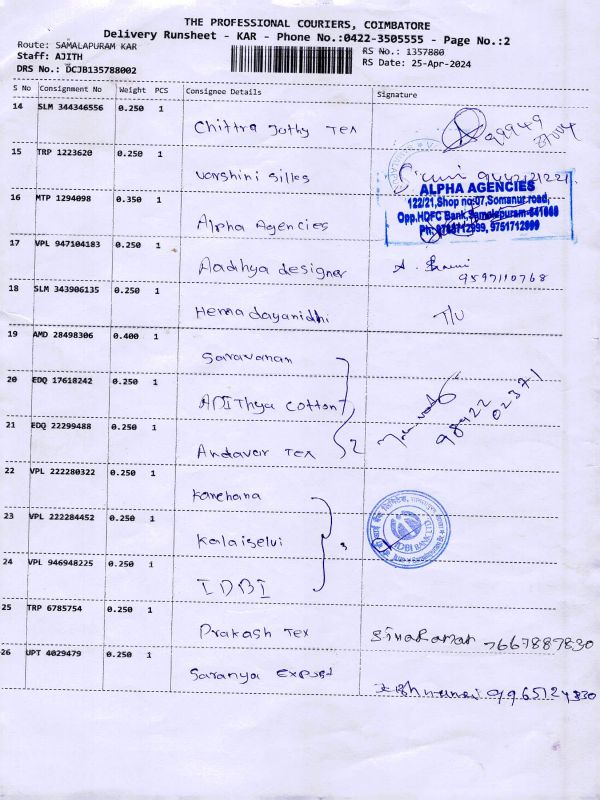 THE PROFESSIONAL COURIERS, COIMBATORE
Delivery Runsheet - KAR - Phone No.:0422-3505555 - Page No.:2
Route: SAMALAPURAM KAR
RS No.: 1357880
Staff: AJITH
RS Date: 25-Apr-2024
DRS No.: DCJB135788002
S No Consignment No Weight PCS Consignee Details Signature
14 SLM 344346556 0.250 1 Chittra Jothy Tex
15 TRP 1223620 0.250 1 varshini silks 9442121221
16 MTP 1294098 0.350 1 Alpha Agencies
ALPHA AGENCIES
122/21,Shop no:07,Somanur road,
Opp.HDFC Bank,Samalapuram-641663
17 VPL 947104183 0.250 1 Aadhya designer 9597110768
18 SLM 343906135 0.250 1 Hema dayanidhi T/U
19 AMD 28498306 0.400 1 Saravanan
20 EDQ 17618242 0.250 1 ADIThya cotton 98422 02371
21 EDQ 22299488 0.250 1 Andaver Tex 2
22 VPL 222280322 0.250 1 Kanchana
23 VPL 222284452 0.250 1 Kalaiselvi 3
IDBI BANK LTD
24 VPL 946948225 0.250 1 IDBI
25 TRP 6785754 0.250 1 Prakash Tex Sivaraman 7667887830
26 UPT 4029479 0.250 1 Saranya Export